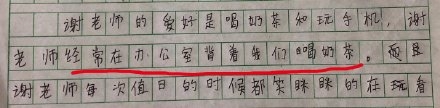 谢老师的爱好是喝奶茶和玩手机，谢
老师经常在办公室背着我们喝奶茶。而且
谢老师每次值日的时候都笑眯眯的在玩着